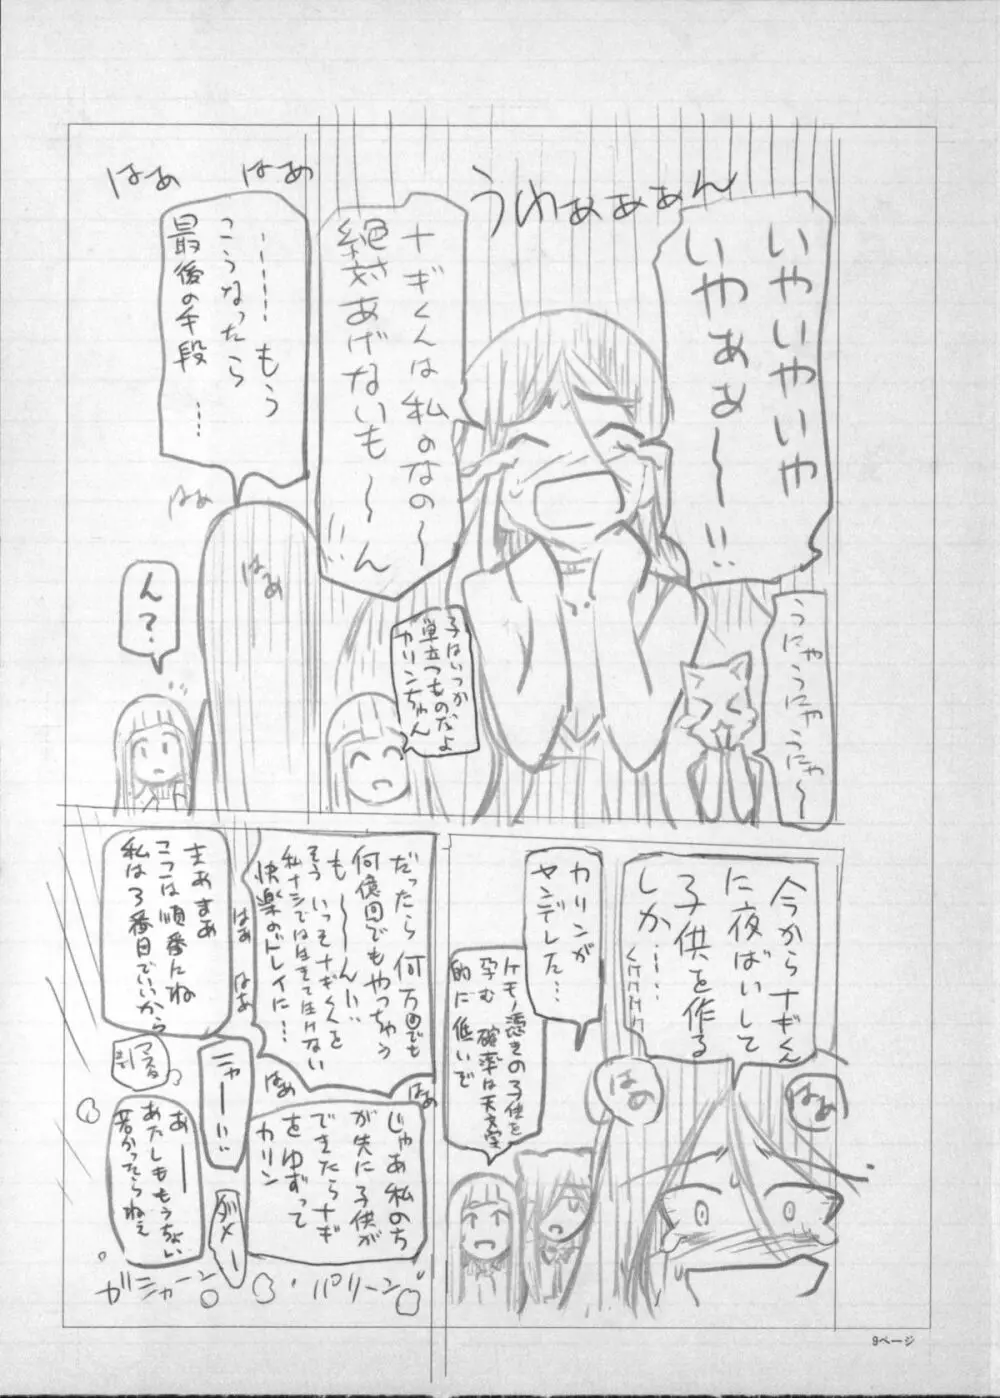 いやいやいや
いやぁぁ〜!!
うわぁぁぁん
うにゃうにゃうにゃ〜
ナギくんは私のなの〜
絶対あげないも〜〜ん!!
子はいつか
巣立つものだよ
カリンちゃん
はぁ
はぁ
……もう
こうなったら
最後の手段…
はぁ
はぁ
ん?
今からナギくん
に夜ばいして
子供を作る
しか……
くけけけけ
はぁ
はぁ
カリンが
ヤンデレした…
ケモノ憑きの子供を
孕む確率は天文学
的に低いで
だったら何万回でも
何億回でもやっちゃう
も〜〜ん!!
そういっそナギくんを
私ナシでは生きていけない
快楽のドレイに…
はぁ
はぁ
はぁ
はぁ
じゃあ私のち
が先に子供が
できたらナギ
をゆずって
カリン
まぁまぁ
ここは順番にね
私は3番目でいいから
ニャーー!!
ダメー
あーー
あたしももうちょい
若かったらねぇ
ガシャーン
パリーン
9ページ